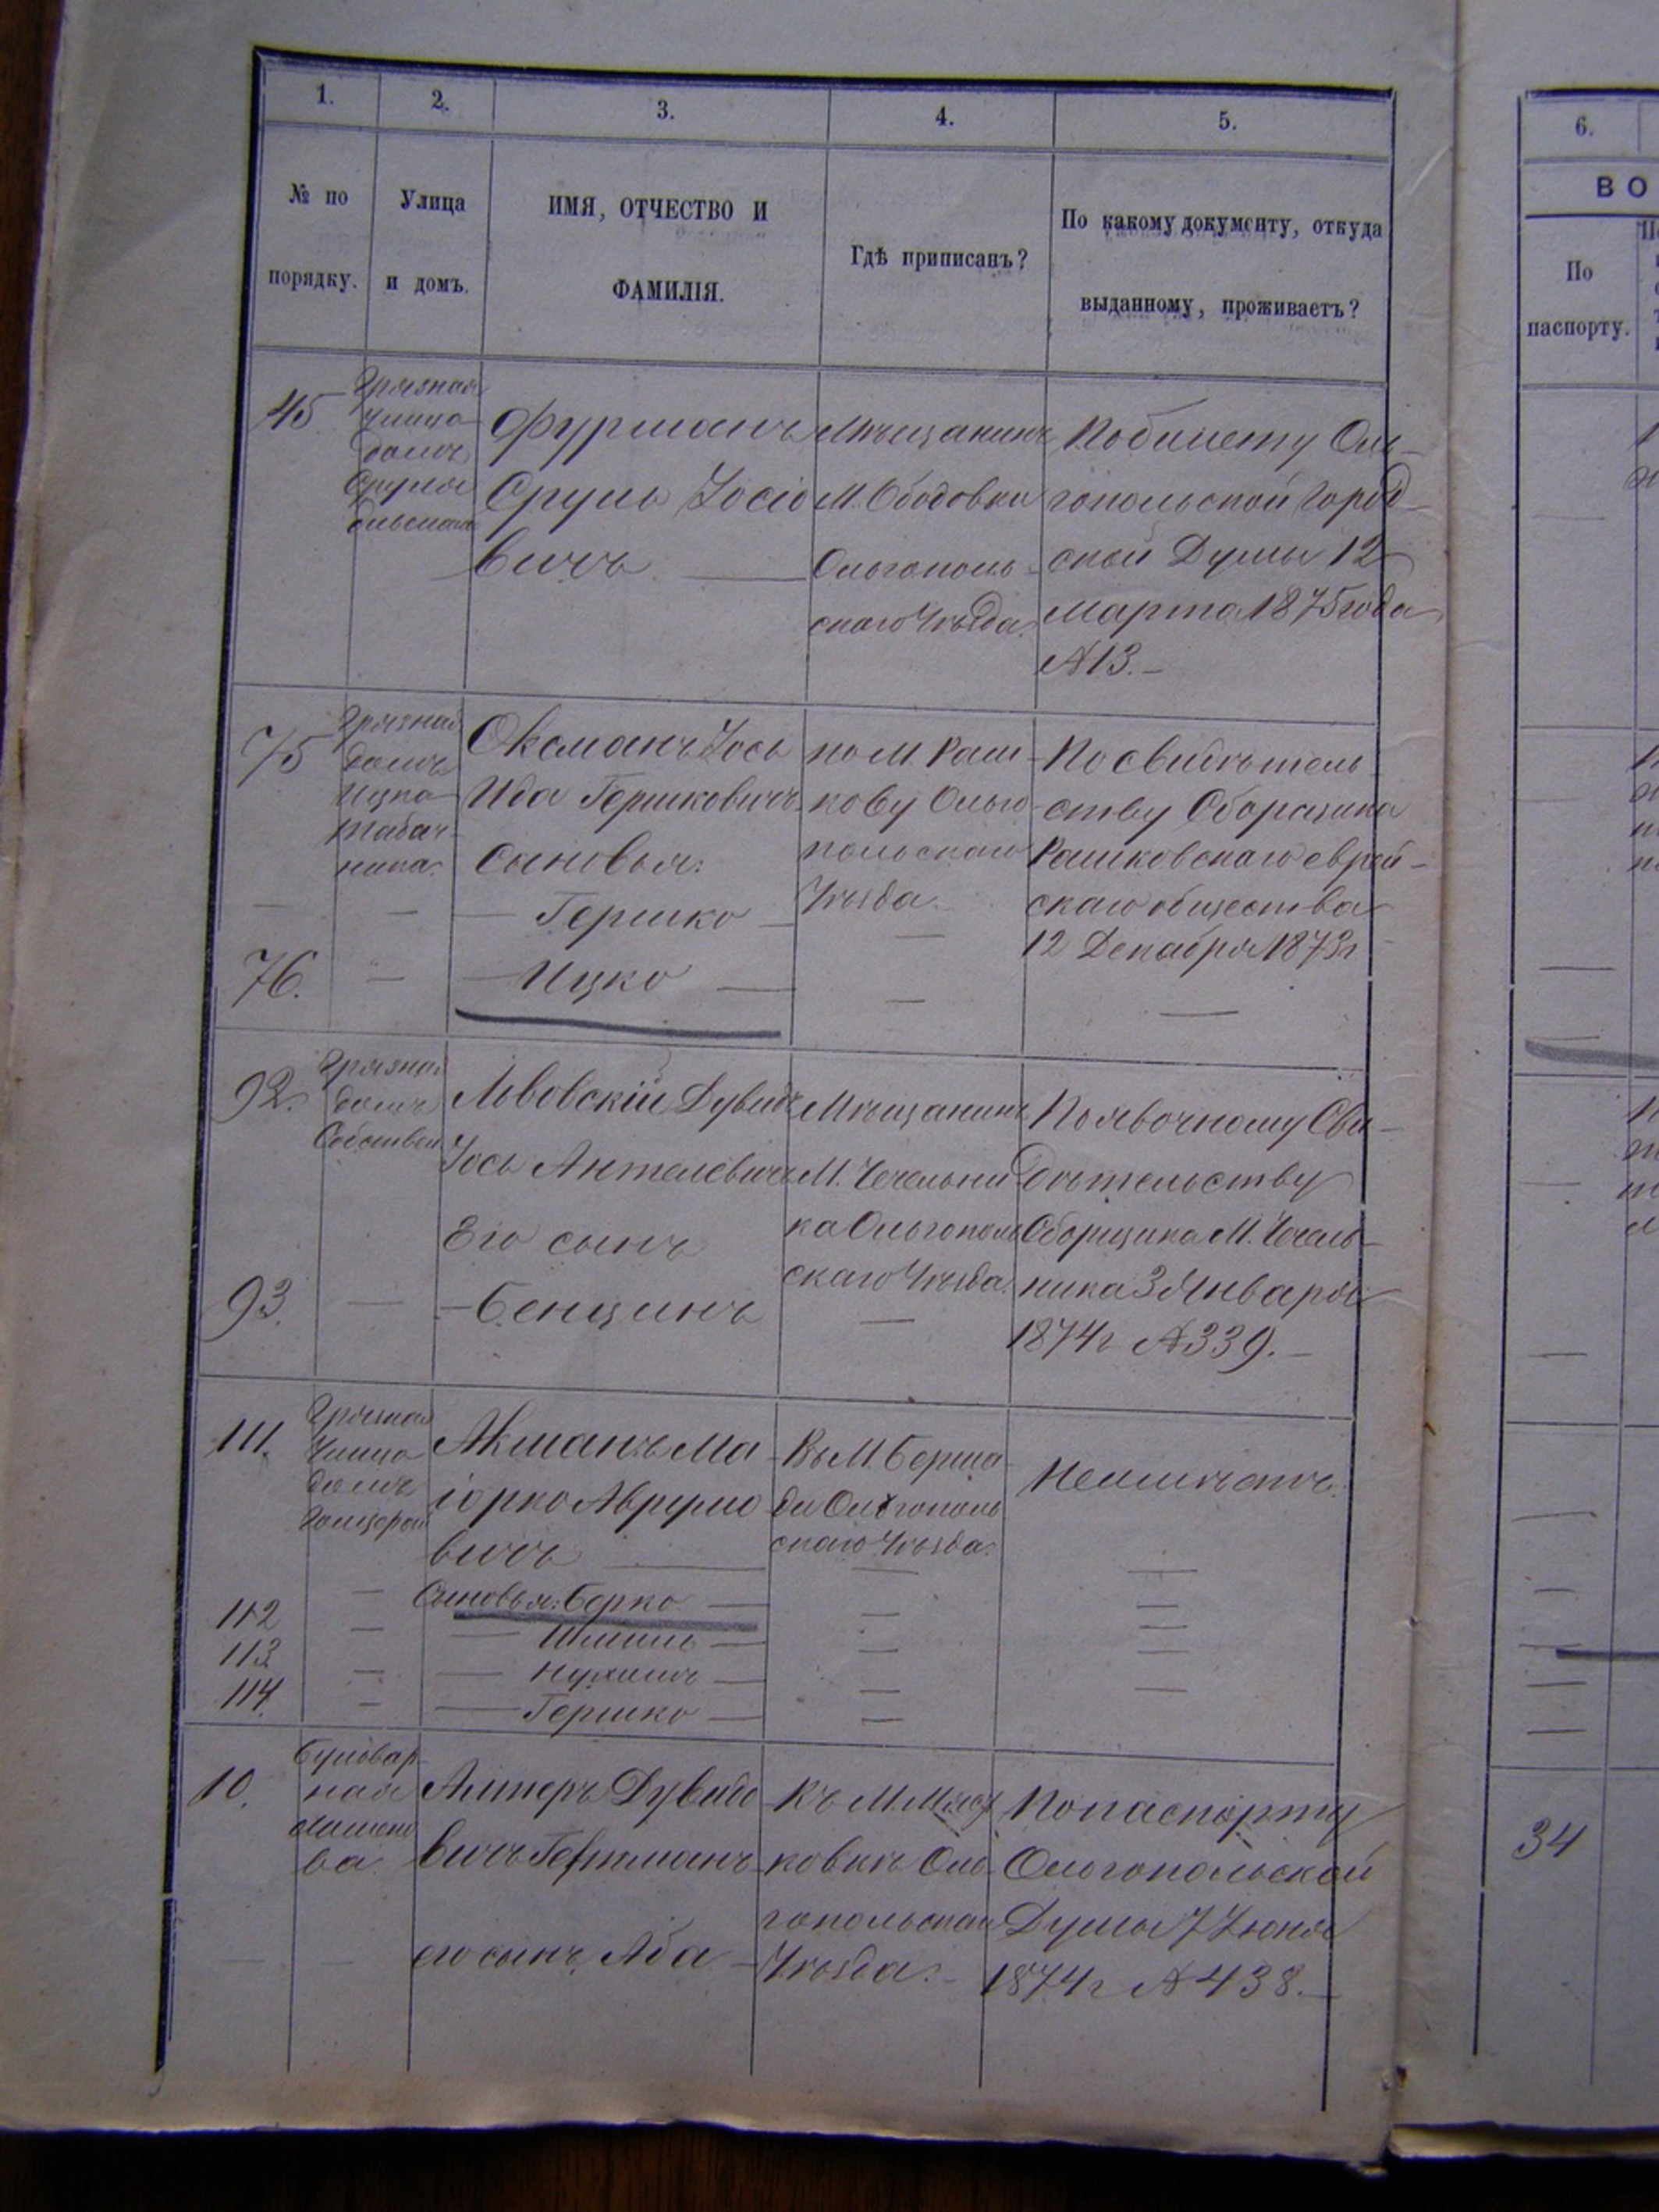 1.
2.
3.
4.
5.
№ по
порядку.
Улица
и домъ.
ИМЯ, ОТЧЕСТВО И
ФАМИЛІЯ.
Гдѣ приписанъ?
По какому документу, откуда
выданному, проживаетъ?
45
Грязная
улица
домъ
Сруля
Фурманъ
Сруль Іосіо
вичъ —
Мѣщанинъ
М. Ободовки
Ольгополь
скаго Уѣзда.
По билету Оль-
гопольской Город-
ской Думы 12
Марта 1875 года
№ 13. —
75
Грязная
домъ
Ицка
Табач-
ника.
Оксманъ Іось
Ида Гершковичъ
Сыновья:
— Гершко —
по М. Раш
кову Ольго
польскаго
Уѣзда.
—
По свидѣтель-
ству Сборщика
Рашковскаго еврей-
скаго общества
12 Декабря 1873 г
76.
—
— Ицко —
—
—
92.
Грязная
домъ
Собствен
Львовскій Дувидъ
Іось Антелевичъ
Его сынъ
Мѣщанинъ
М. Чечельни
ка Ольгополь
скаго Уѣзда.
По явочному Сви-
дѣтельству
Сборщика М. Чечель-
ника 3 Января
1874 г № 339. —
93.
—
— Бенціинъ
—
111.
Грязная
Улица
домъ
Акманъ Ма
іорко Аврумо
вичъ —
Въ М. Берша
ди Ольгополь
скаго Уѣзда.
Неимѣетъ.
— Сыновья: Берко —
112 — — Шмиль —
113 — — Нухимъ —
114. — — Гершко —
10.
Бульвар
ная
Алтеръ Дувидо
вичъ Гертманъ
его сынъ Аба —
Къ М. Мяст
ковкѣ Оль
гопольскаго
Уѣзда. —
По паспорту
Ольгопольской
Думы 7 Іюня
1874 г № 438. —
6.
ВО
По
паспорту.
34